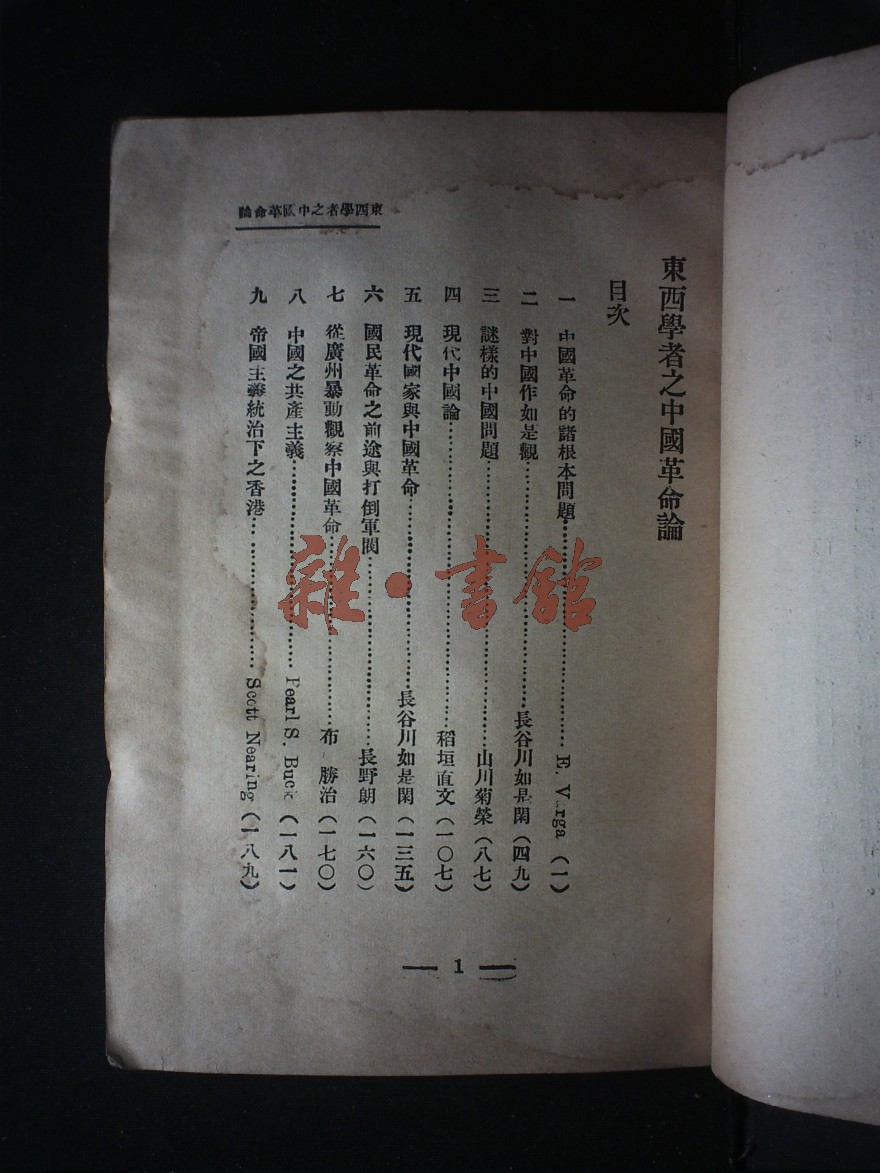 東西學者之中國革命論
東西學者之中國革命論
目次
一 中國革命的諸根本問題……………………E. Varga (一)
二 對中國作如是觀……………………長谷川如是閑 (四九)
三 謎樣的中國問題……………………山川菊榮 (八七)
四 現代中國論……………………稻垣直文 (一〇七)
五 現代國家與中國革命……………………長谷川如是閑 (一三五)
六 國民革命之前途與打倒軍閥……………………長野朗 (一六〇)
七 從廣州暴動觀察中國革命……………………布 勝治 (一七〇)
八 中國之共產主義……………………Pearl S. Buck (一八一)
九 帝國主義統治下之香港……………………Scott Nearing (一八九)
— 1 —
雜·書館